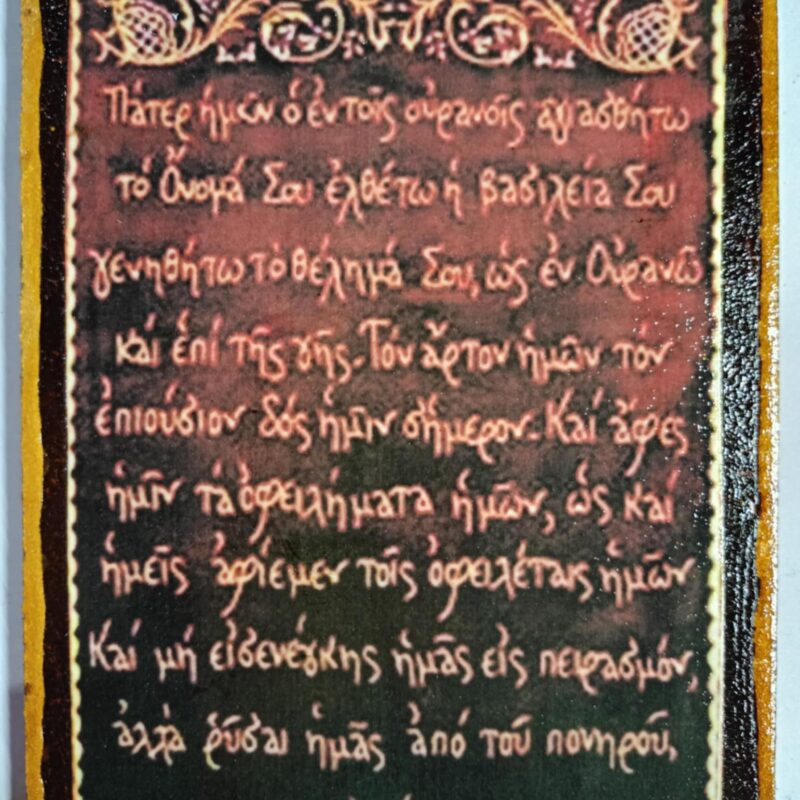 Πάτερ ἡμῶν ὁ ἐν τοῖς οὐρανοῖς ἁγιασθήτω
τό Ὄνομά Σου ἐλθέτω ἡ βασιλεία Σου
γενηθήτω τὸ θέλημά Σου, ὡς ἐν Οὐρανῶ
καί ἐπί τῆς γῆς. Τόν ἄρτον ἡμῶν τόν
ἐπιούσιον δός ἡμῖν σήμερον. Καί ἄφες
ἡμῖν τά ὀφειλήματα ἡμῶν, ὡς καί
ἡμεῖς ἀφίεμεν τοῖς ὀφειλέταις ἡμῶν
Καί μή εἰσενέγκης ἡμᾶς εἰς πειρασμόν,
ἀλλὰ ῥῦσαι ἡμᾶς ἀπό τοῦ πονηροῦ,